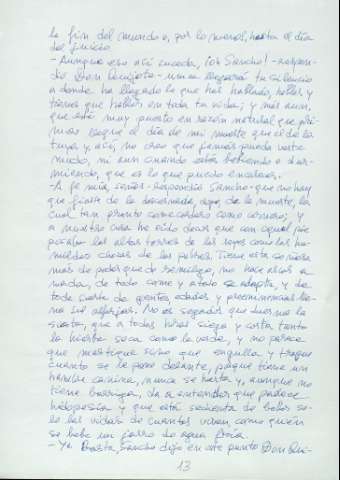 la fin del mundo o, por lo menos, hasta el día
del juicio.
-Aunque eso así suceda, ¡oh Sancho! -respon-
dió Don Quijote- nunca llegará tu silencio
a donde ha llegado lo que has hablado, hablas y
tienes que hablar en toda tu vida; y más aun,
que está muy puesto en razón natural que pri-
mero llegue el día de mi muerte que el de la
tuya, y así, no creo que jamás pueda verte
mudo, ni aun cuando estés bebiendo o dur-
miendo, que es lo que puedo encarecer.
-A fe mía, señor -respondió Sancho- que no hay
que fiarse de la descarnada, digo, de la muerte, la
cual tan pronto come cordero como carnero; y
a nuestro cura he oído decir que con igual pie
pisaba las altas torres de los reyes como las hu-
mildes chozas de los pobres. Tiene esta señora
más de poder que de remilgo, no hace ascos a
nada, de todo come y a todo se adapta, y de
toda suerte de gentes, edades y preeminencias lle-
na sus alforjas. No es segador que duerma la
siesta, que a todas horas siega y corta tanto
la hierba seca como la verde, y no parece
que mastique sino que engulle y traga
cuanto se le pone delante, porque tiene un
hambre canina, nunca se harta y, aunque no
tiene barriga, da a entender que padece
hidropesía y que está sedienta de beber so-
lo las vidas de cuantos viven, como quien
se bebe un jarro de agua fría.
-Ya basta, Sancho dijo en este punto Don Qui-
13